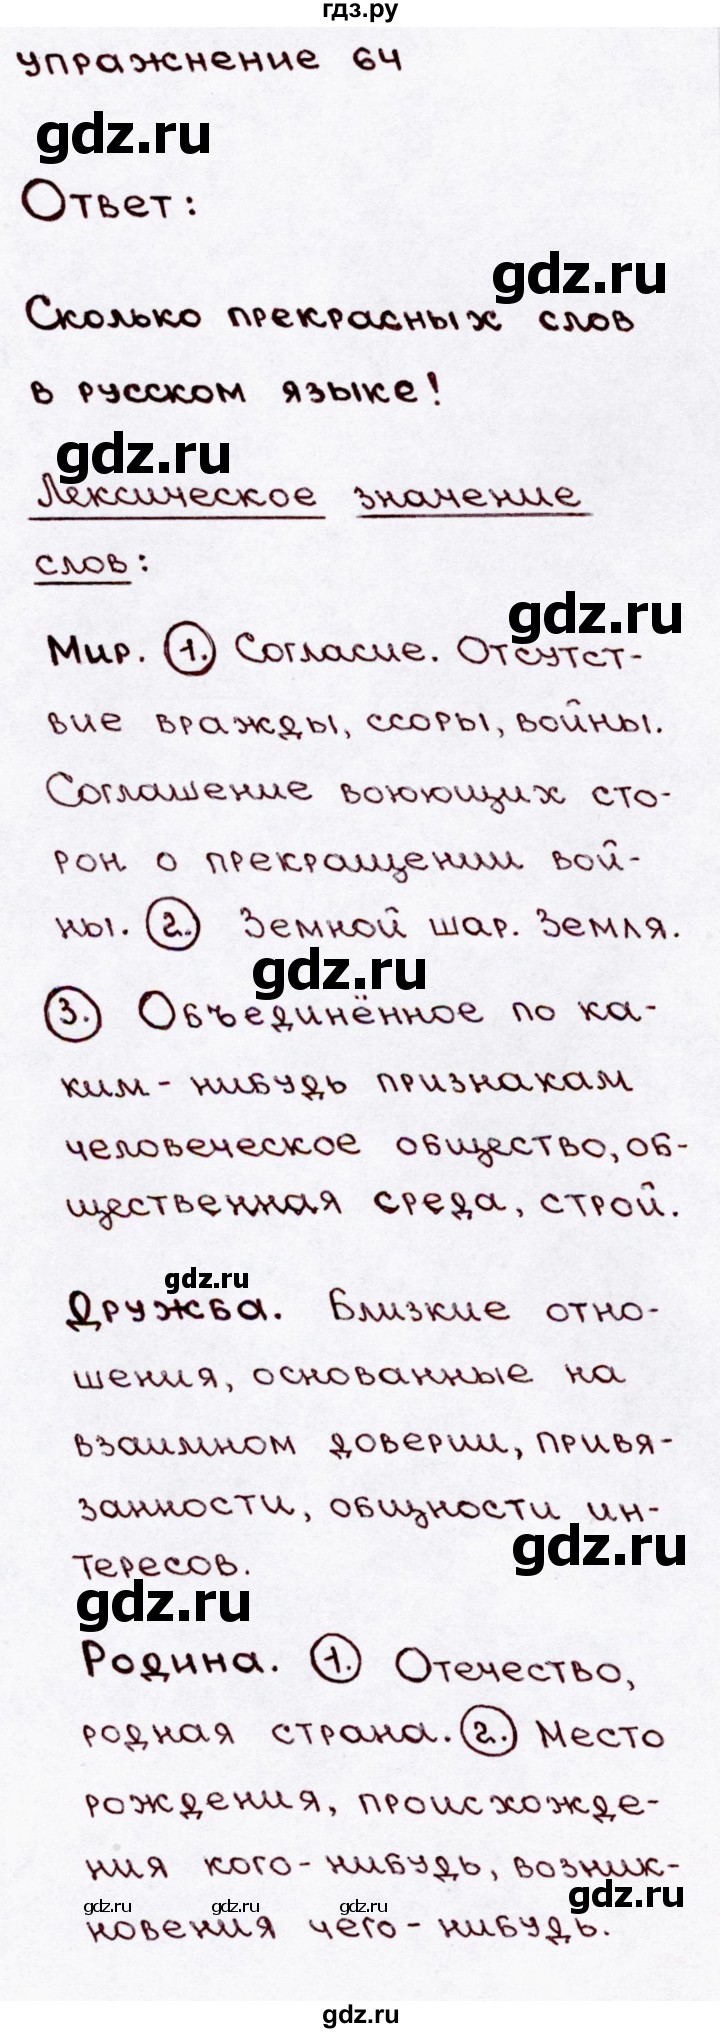 гдз.ру
упражнение 64
gdz.ru
Ответ:
gdz.ru
Сколько прекрасных слов
в русском языке!
gdz.ru
Лексическое значение
слов:
gdz.ru
Мир. 1. Согласие. Отсутст-
вие вражды, ссоры, войны.
Соглашение воюющих сто-
рон о прекращении вой-
ны. 2. Земной шар. Земля.
gdz.ru
3. Объединённое по ка-
ким-нибудь признакам
человеческое общество, об-
щественная среда, строй.
gdz.ru
Дружба. Близкие отно-
шения, основанные на
взаимном доверии, привя-
занности, общности ин-
gdz.ru
тересов.
gdz.ru
Родина. 1. Отечество,
родная страна. 2. Место
рождения, происхожде-
ния кого-нибудь, возник-
gdz.ru
gdz.ru gdz.ru gdz.ru
новения чего-нибудь.
gdz.ru